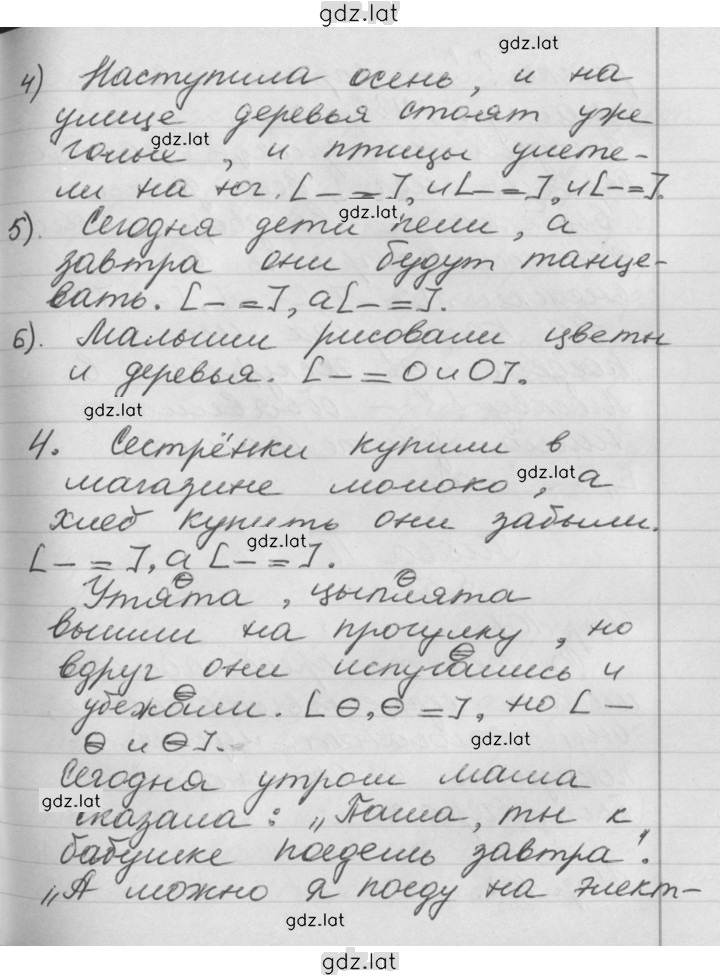 gdz.lat
gdz.lat
4) Наступила осень, и на
улице деревья стоят уже
gdz.lat
голые, и птицы улете-
ли на юг. [– =], и [– =], и [– =].
gdz.lat
5). Сегодня дети пели, а
завтра они будут танце-
вать. [– =], а [– =].
6). Малыши рисовали цветы
и деревья. [– = О и О].
gdz.lat
4. Сестрёнки купили в
магазине молоко, а
gdz.lat
хлеб купить они забыли.
gdz.lat
[– =], а [– =].
Утята, цыплята
вышли на прогулку, но
вдруг они испугались и
убежали. [⊖, ⊖ =], но [–
⊖ и ⊖].
gdz.lat
Сегодня утром Маша
gdz.lat
сказала: „Паша, ты к
бабушке поедешь завтра".
„А можно я поеду на элект-
gdz.lat
gdz.lat